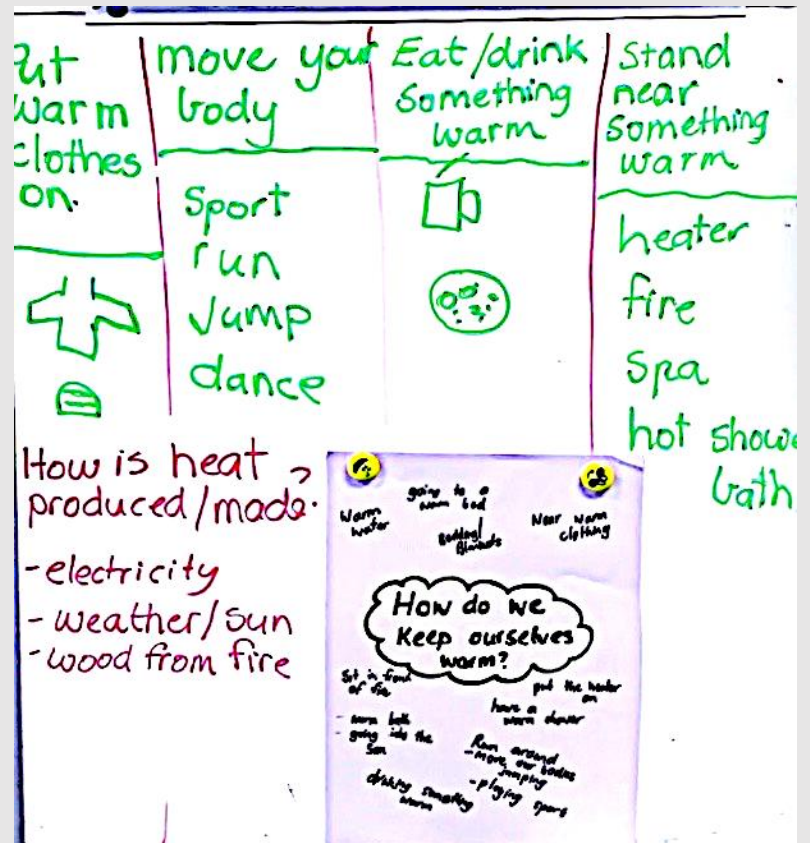 Put
warm
clothes
on.
move your
body
Sport
run
Jump
dance
Eat/drink
something
warm
Stand
near
something
warm
heater
fire
spa
hot showe
bath
How is heat
produced/made?
-electricity
- weather/sun
- wood from fire
Warm
water
going to a
warm bed
Blankets
warm
clothing
How do we
Keep ourselves
warm?
Sit in front
of fire
put the heater
on
have a
warm shower
- warm bath
- going into the
Sun
Run around
- move our bodies
jumping
- playing sport
drinking something
warm